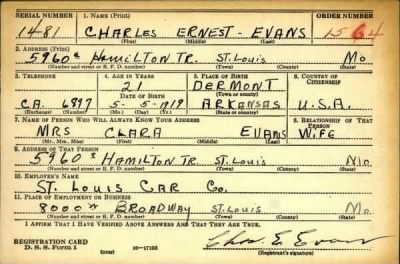 SERIAL NUMBER 1. NAME (Print) ORDER NUMBER
1481 CHARLES ERNEST - EVANS 1564
(First) (Middle) (Last)
2. ADDRESS (Print)
5960 HAMILTON TR. ST. LOUIS MO
(Number and street or R. F. D. number) (Town) (County) (State)
3. TELEPHONE 4. AGE IN YEARS 5. PLACE OF BIRTH 6. COUNTRY OF CITIZENSHIP
21 DERMONT
DATE OF BIRTH (Town or county)
CA. 6897 5- 5-1919 ARKANSAS U.S.A.
(Exchange) (Number) (Mo.) (Day) (Yr.) (State or country)
7. NAME OF PERSON WHO WILL ALWAYS KNOW YOUR ADDRESS 8. RELATIONSHIP OF THAT PERSON
MRS CLARA EVANS WIFE
(Mr., Mrs., Miss) (First) (Middle) (Last)
9. ADDRESS OF THAT PERSON
5960 HAMILTON TR. ST. LOUIS MO.
(Number and street or R. F. D. number) (Town) (County) (State)
10. EMPLOYER'S NAME
ST. LOUIS CAR CO.
11. PLACE OF EMPLOYMENT OR BUSINESS
8000 BROADWAY ST. LOUIS MO.
(Number and street or R. F. D. number) (Town) (County) (State)
I AFFIRM THAT I HAVE VERIFIED ABOVE ANSWERS AND THAT THEY ARE TRUE.
REGISTRATION CARD
D. S. S. Form 1 (over) Chas. E. Evans